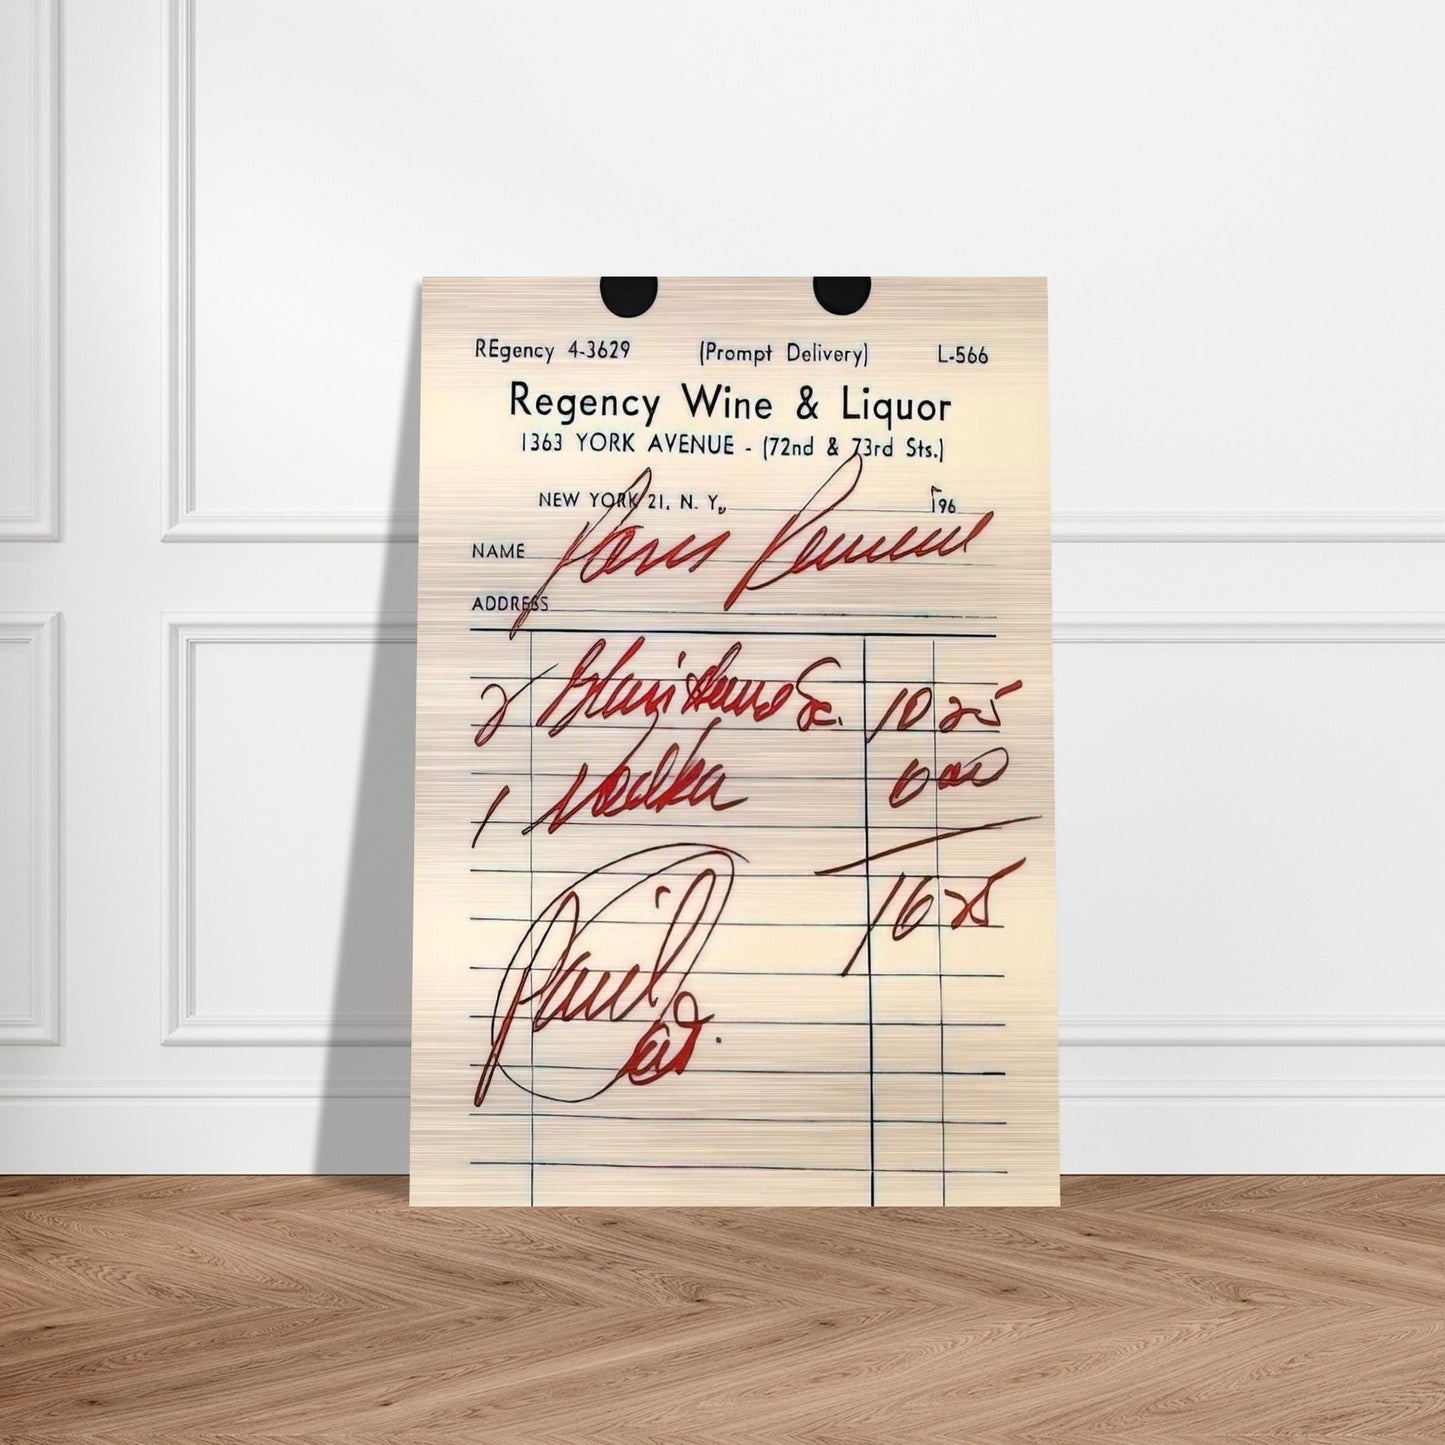 REgency 4-3629 (Prompt Delivery) L-566
Regency Wine & Liquor
1363 YORK AVENUE - (72nd & 73rd Sts.)
NEW YORK 21, N. Y. 196
NAME
ADDRESS
2 10 25
1 Vodka 6 00
16 25
Paid